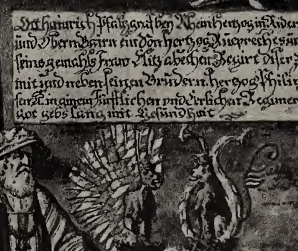 Ottheinrich Pfalzgraf bey Rhein Hertzog in Nider
und Obern Bairn ein Son Hertzog Rueprechts un
seins gemahls Fraw Elizabethen Regirt diser z
mit und neben seinem Brudern Hertzog Philip
in ainem Furstlichen und Erlicher Regimen
Got geb lang mit Gesundheit